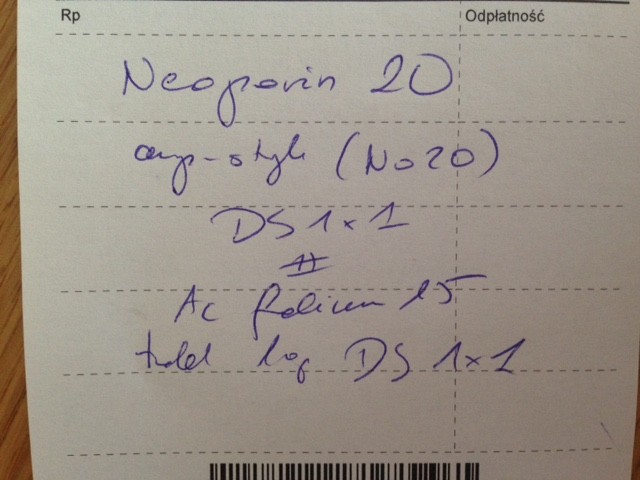 Rp Odpłatność
Neoparin 20
amp-strzyk (No 20)
DS 1x1
#
Ac folicum 15
1 op DS 1x1